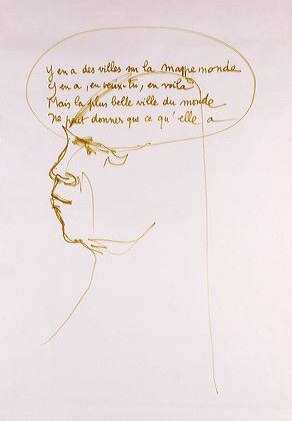 Y en a des villes sur la mappemonde
Y en a, en veux-tu, en voilà
Mais la plus belle ville du monde
Ne peut donner que ce qu'elle a